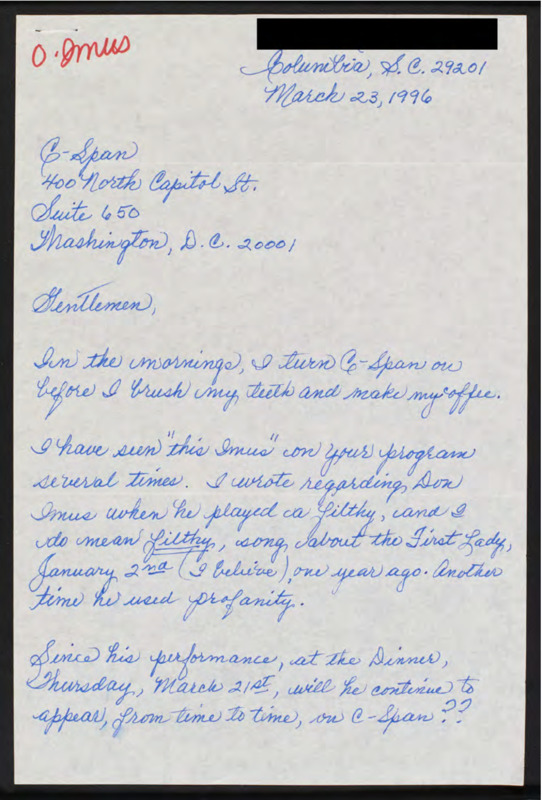 O. Imus
Columbia, S.C. 29201
March 23, 1996
C-Span
400 North Capitol St.
Suite 650
Washington, D.C. 20001
Gentlemen,
In the mornings, I turn C-Span on
before I brush my teeth and make my coffee.
I have seen "this Imus" on your program
several times. I wrote regarding Don
Imus when he played a filthy, and I
do mean filthy, song about the First Lady,
January 2nd (I believe), one year ago. Another
time he used profanity.
Since his performance, at the Dinner,
Thursday, March 21st, will he continue to
appear, from time to time, on C-Span??